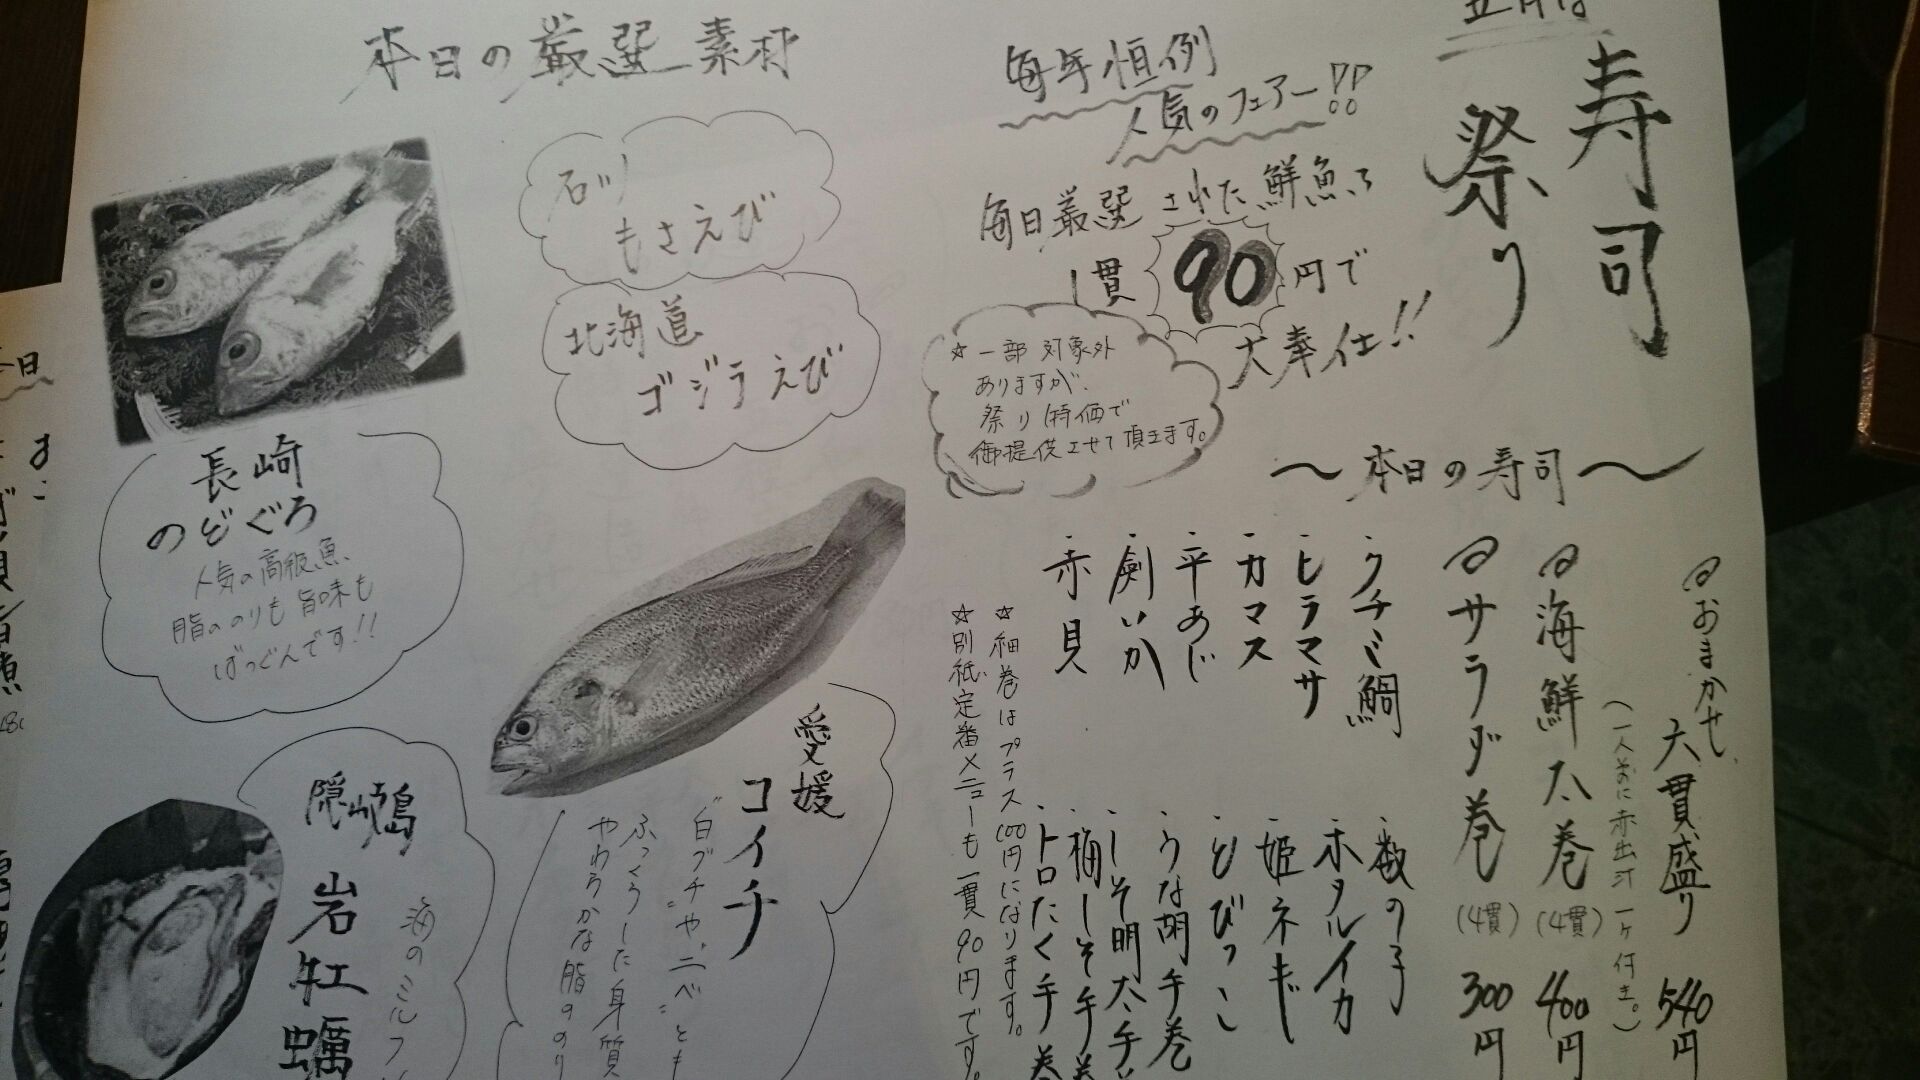 寿司
祭り
毎年恒例
人気のフェアー!!
毎日厳選された鮮魚を
1貫90円で
大奉仕!!
☆一部対象外
ありますが、
祭り特価で
御提供させて頂きます。
〜本日の寿司〜
おまかせ
六貫盛り 540円
(一人前に赤出汁一ヶ付き。)
海鮮太巻(4貫) 400円
サラダ巻(4貫) 300円
・クチミ鯛
・ヒラマサ
・カマス
・平あじ
・剣いか
・赤貝
・数の子
・ホタルイカ
・姫ネギ
・とびっこ
・うな胡手巻
・しそ明太手
・梅しそ手巻
・トロたく手巻
☆細巻はプラス100円になります。
☆別紙定番メニューも一貫90円です。
本日の厳選素材
石川
もさえび
北海道
ゴジラえび
長崎
のどぐろ
人気の高級魚、
脂ののりも旨味も
ばつぐんです!!
愛媛
コイチ
"白グチ"や"ニベ"とも
ふっくらした身質
やわらかな脂ののり
隠岐島
岩牡蠣
海のミルク